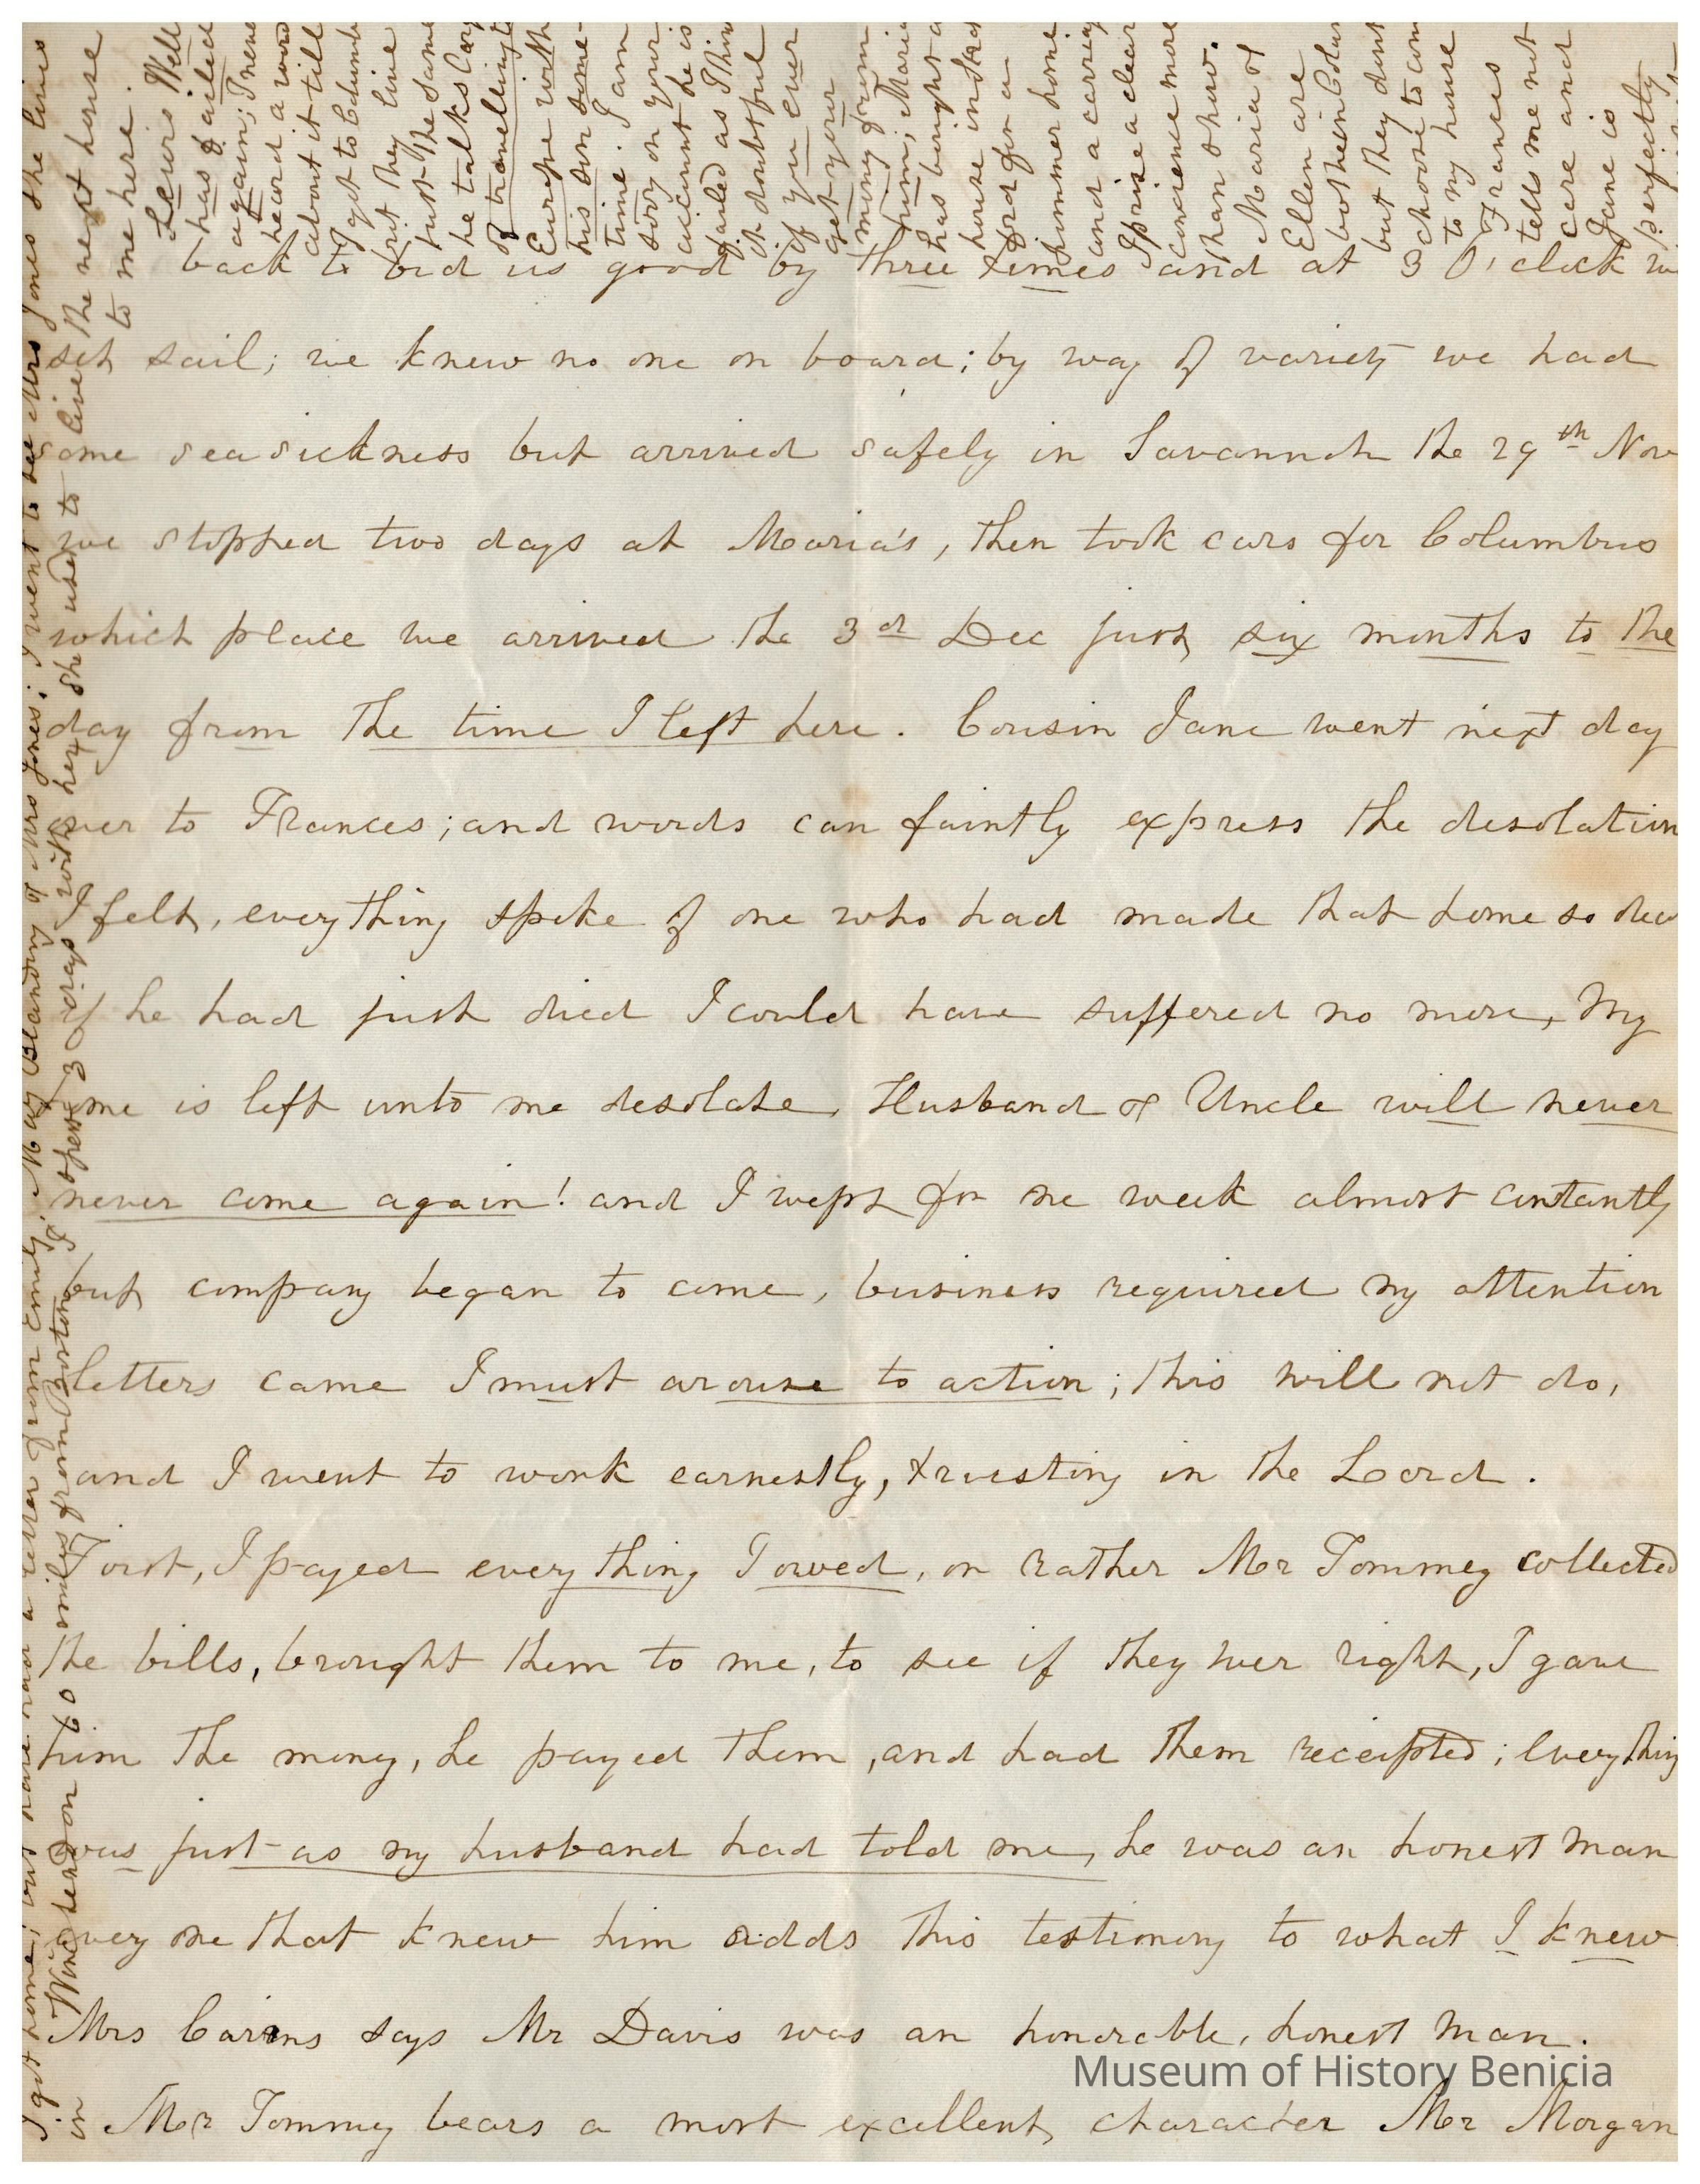 back to bid us good by three times and at 3 O'clock we
set sail; we knew no one on board; by way of variety we had
some sea sickness but arrived safely in Savannah the 29th Nov
we stopped two days at Maria's, then took cars for Columbus
which place we arrived the 3d Dec just six months to the
day from the time I left here. Cousin Jane went next day
over to Frances; and words can faintly express the desolation
I felt, everything spoke of one who had made that home so dear
if he had just died I could have suffered no more, My
home is left unto me desolate, Husband & Uncle will never
never come again! and I wept for one week almost contantly
but company began to come, business required my attention
letters came I must arouse to action; this will not do,
and I went to work earnestly, trusting in the Lord.
First, I payed every thing I owed, or rather Mr Tommey collected
the bills, brought them to me, to see if they wer right, I gave
him the money, he payed them, and had them receipted; everything
was just as my husband had told me, he was an honest man
every one that knew him adds this testimony to what I knew
Mrs Cairns says Mr Davis was an honorable, honest man.
Mr Tommey bears a most excellent character Mr Morgan
I got home; but have had a letter from Emily, May Blanding & Mrs Jones; I went to see Mrs Jones she lives
in Winchendon 60 miles from Boston, I spent 3 days with her she used to live the next house
to me here.
Lewis Well
has failed
again; I never
heard a word
about it till
I got to Columb
but they live
just the same
he talks
of traveling to
Europe with
his son some
time. I am
sorry on your
account he is
failed as I thin
it doubtful
if you ever
get your
money from
him; Maria
has bought a
house in
for a
summer home
and a carriag
I prise a clear
conscience more
than show.
Maria &
Ellen are
both in Colum
but they dont
choose to com
to my house
Frances
tells me not
care and
Jane is
perfectly
Museum of History Benicia